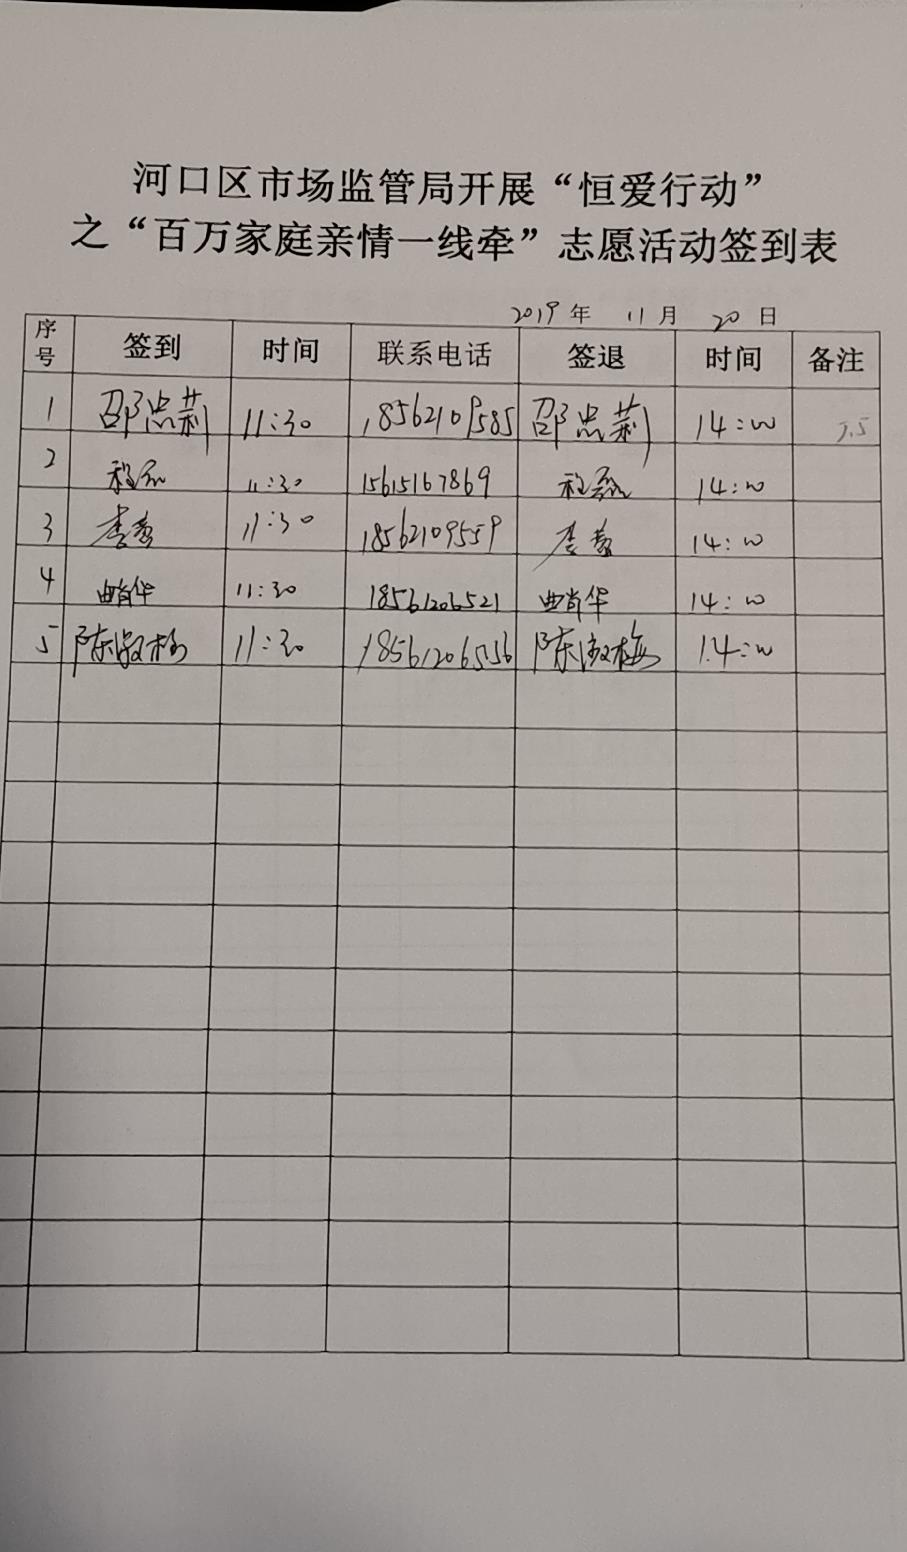 河口区市场监管局开展“恒爱行动”
之“百万家庭亲情一线牵”志愿活动签到表
2019年 11月 20日
序号 签到 时间 联系电话 签退 时间 备注
1 邵忠莉 11:30 18562109585 邵忠莉 14:00
2 程磊 11:30 15615167869 程磊 14:00
3 李 11:30 18562109559 李 14:00
4 曲肖华 11:30 18561206521 曲肖华 14:00
5 陈淑梅 11:30 18561206556 陈淑梅 14:00